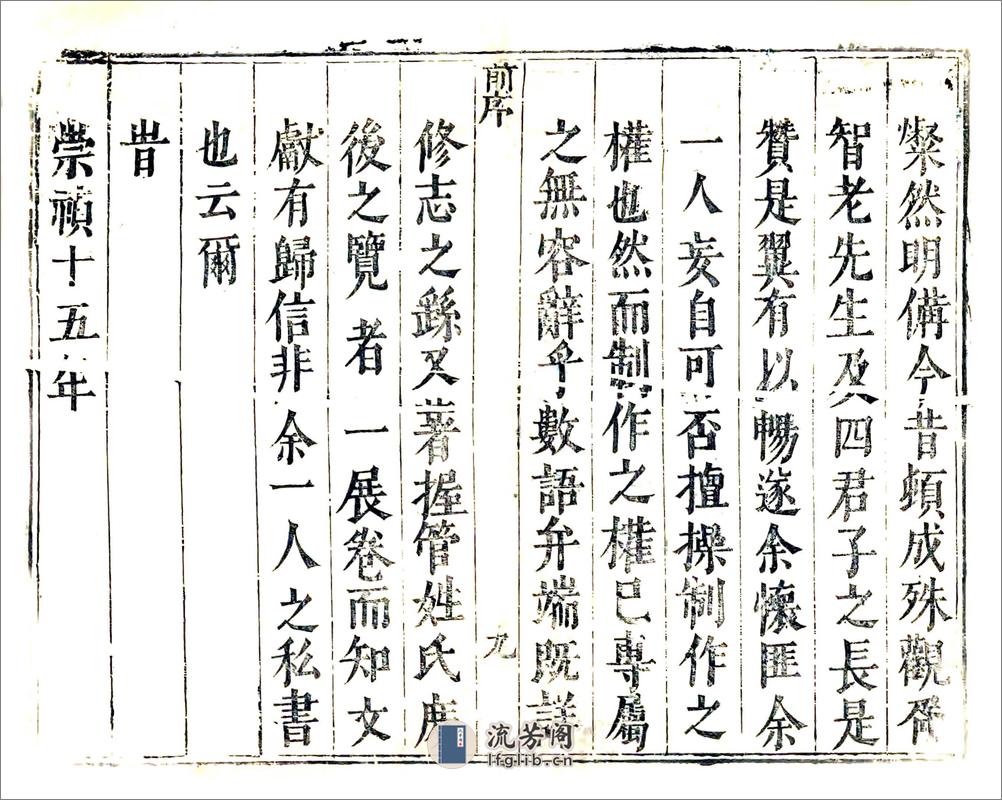 燦然明備今昔頓成殊觀胥
智老先生及四君子之長是
贊是翼有以暢遂余懷匪余
一人妄自可否擅操制作之
權也然而制作之權已專屬
之無容辭乎數語弁端既詳
前序
九
修志之繇又著握管姓氏庶
後之覽者一展卷而知文
獻有歸信非余一人之私書
也云爾
旹
崇禎十五年
流芳阁
lfglib.cn